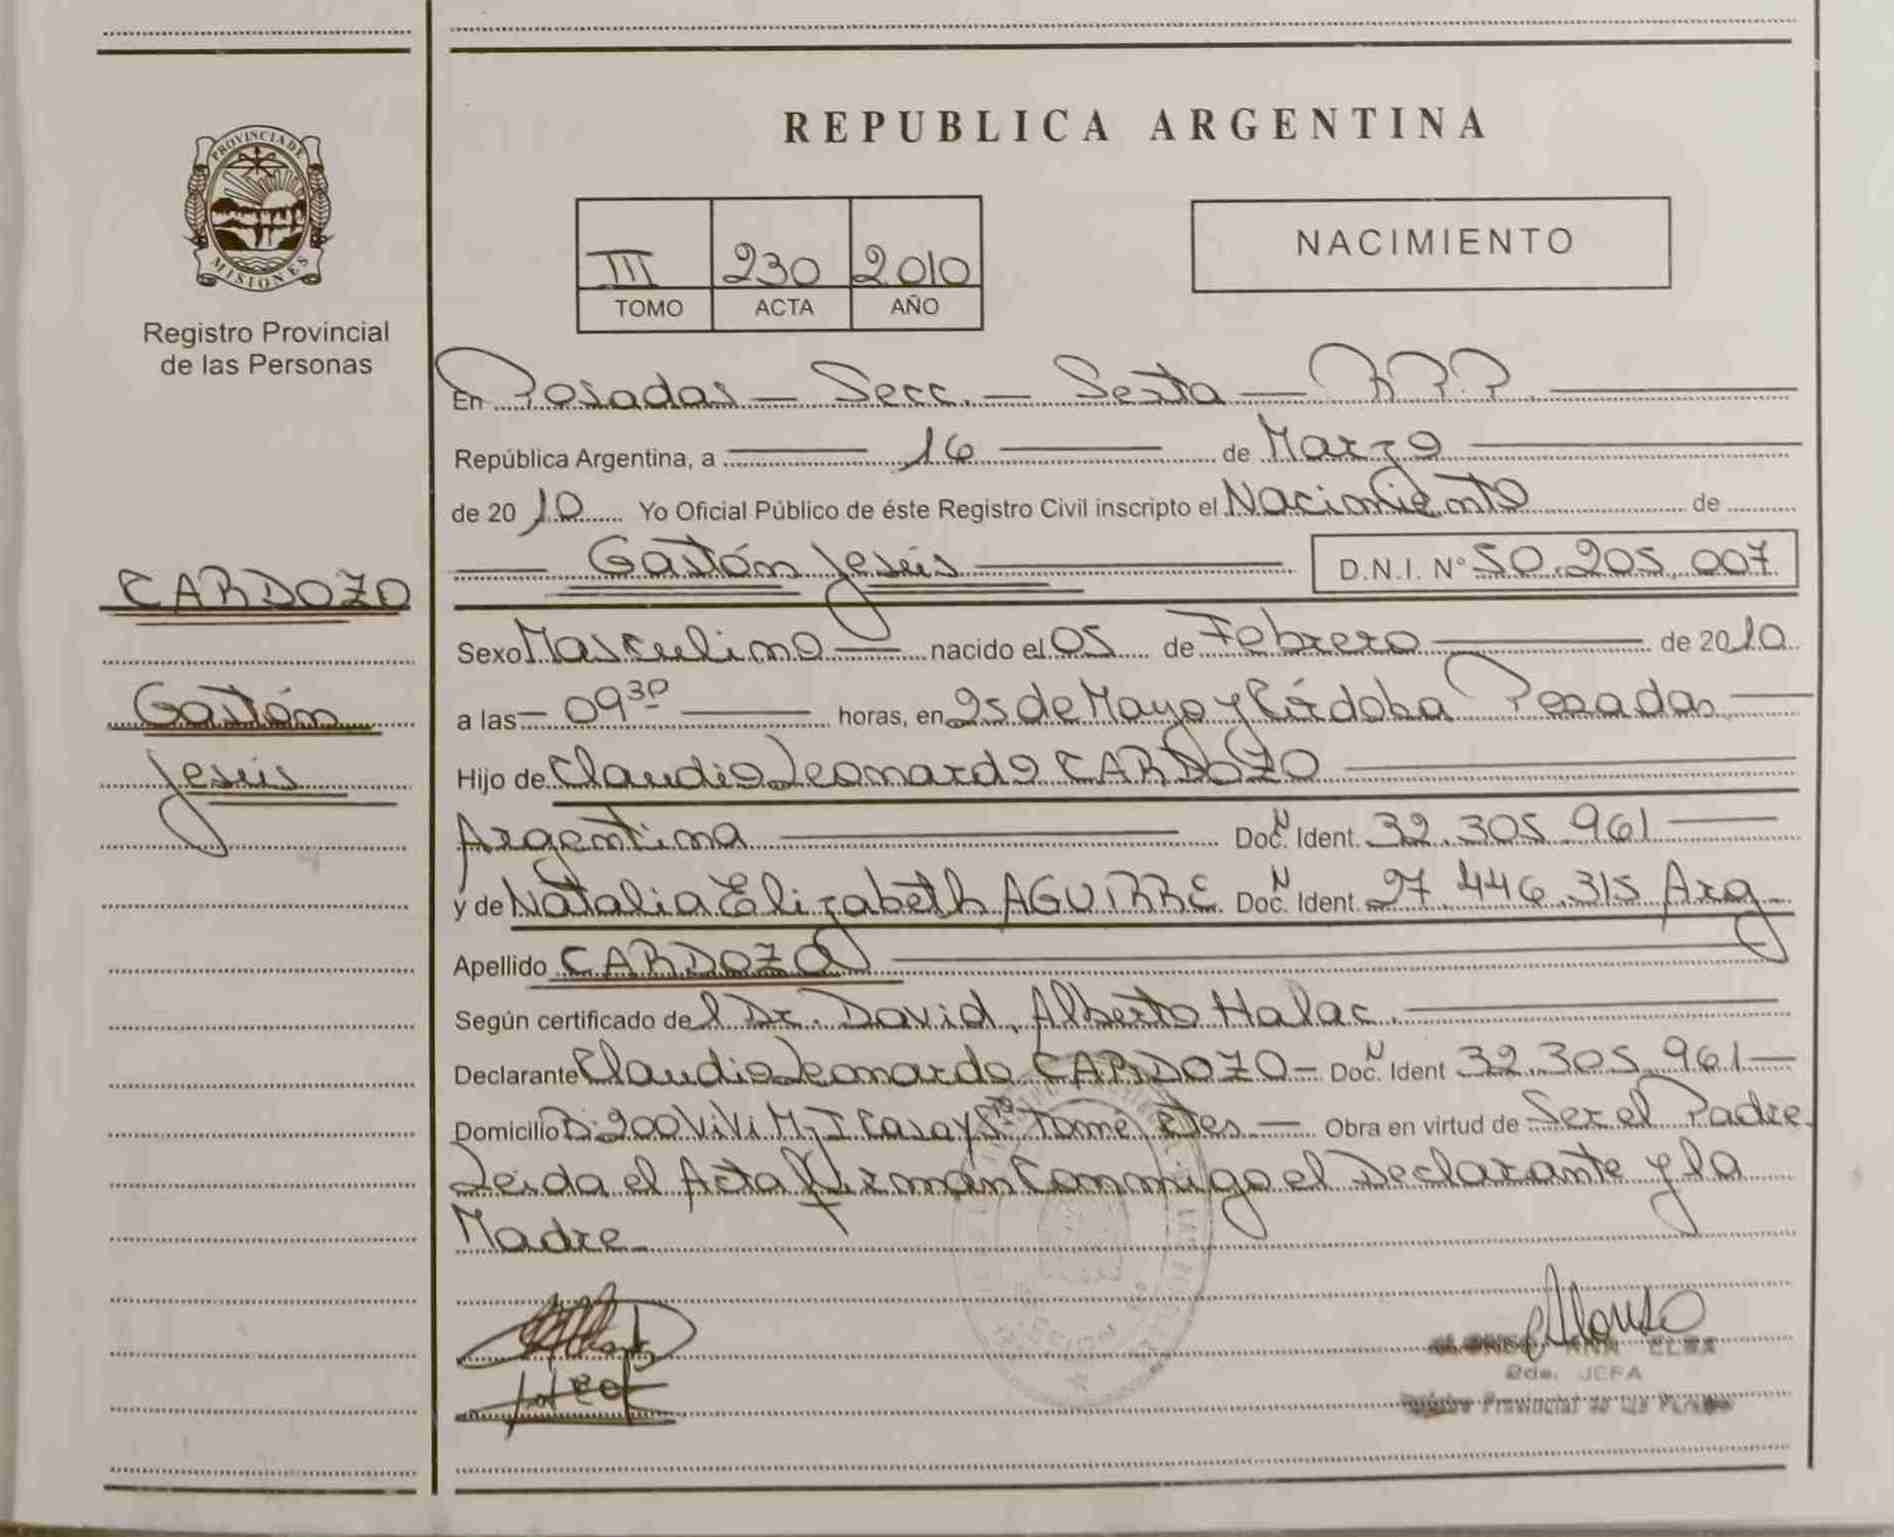 REPUBLICA ARGENTINA
PROVINCIA DE
MISIONES
Registro Provincial
de las Personas
III 230 2010
TOMO ACTA AÑO
NACIMIENTO
En Posadas — Secc. — Sexta — R.P.P.
República Argentina, a 16 de Marzo
de 2010 Yo Oficial Público de éste Registro Civil inscripto el Nacimiento de
Gastón Jesús D.N.I. Nº 50.205.007
CARDOZO
Gastón
Jesús
Sexo Masculino nacido el 05 de Febrero de 2010
a las 09 30 horas, en 25 de Mayo y Córdoba Posadas
Hijo de Claudio Leonardo CARDOZO
Argentina Doc. N Ident. 32.305.961
y de Natalia Elizabeth AGUIRRE Doc. N Ident. 27.446.315 Arg
Apellido CARDOZO
Según certificado del Dr. David, Alberto Halac.
Declarante Claudio Leonardo CARDOZO — Doc. N Ident 32.305.961
Domicilio 200 ViVi Casa y Sto Tome Obra en virtud de Ser el Padre
Leida el Acta Firman Conmigo el Declarante y la
Madre
Alonso
ANA ELSA
JEFA
Registro Provincial de las Personas